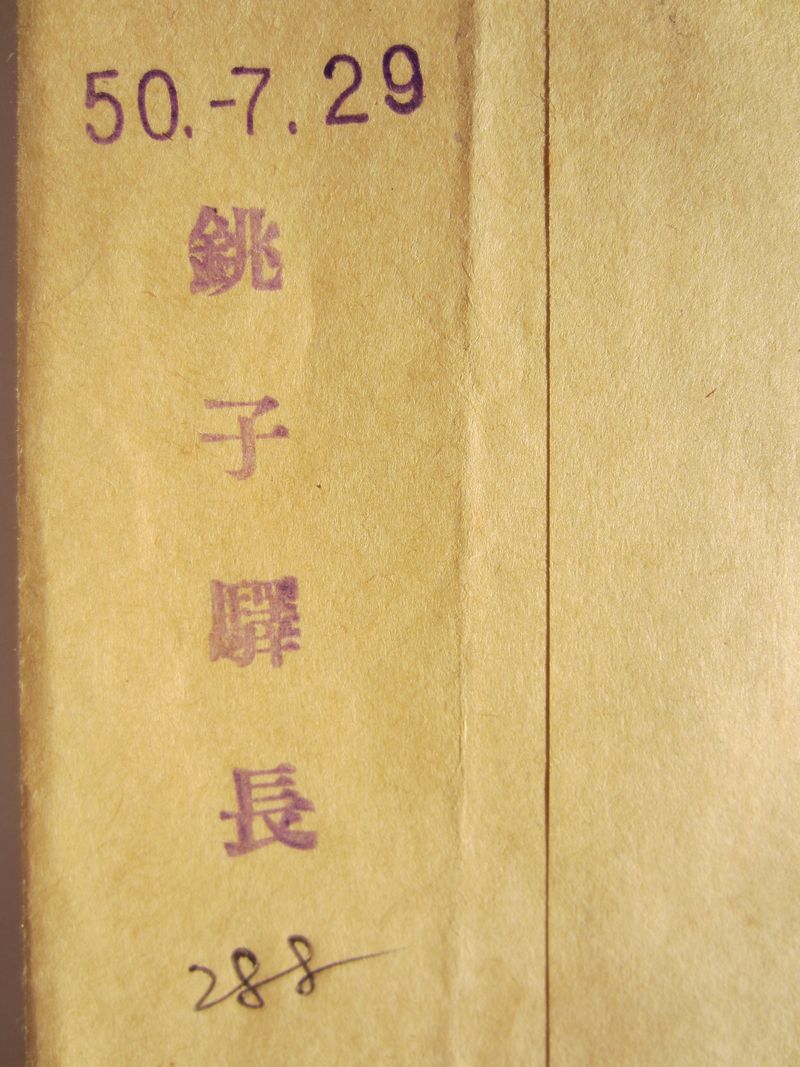 50.-7.29
銚子驛長
288